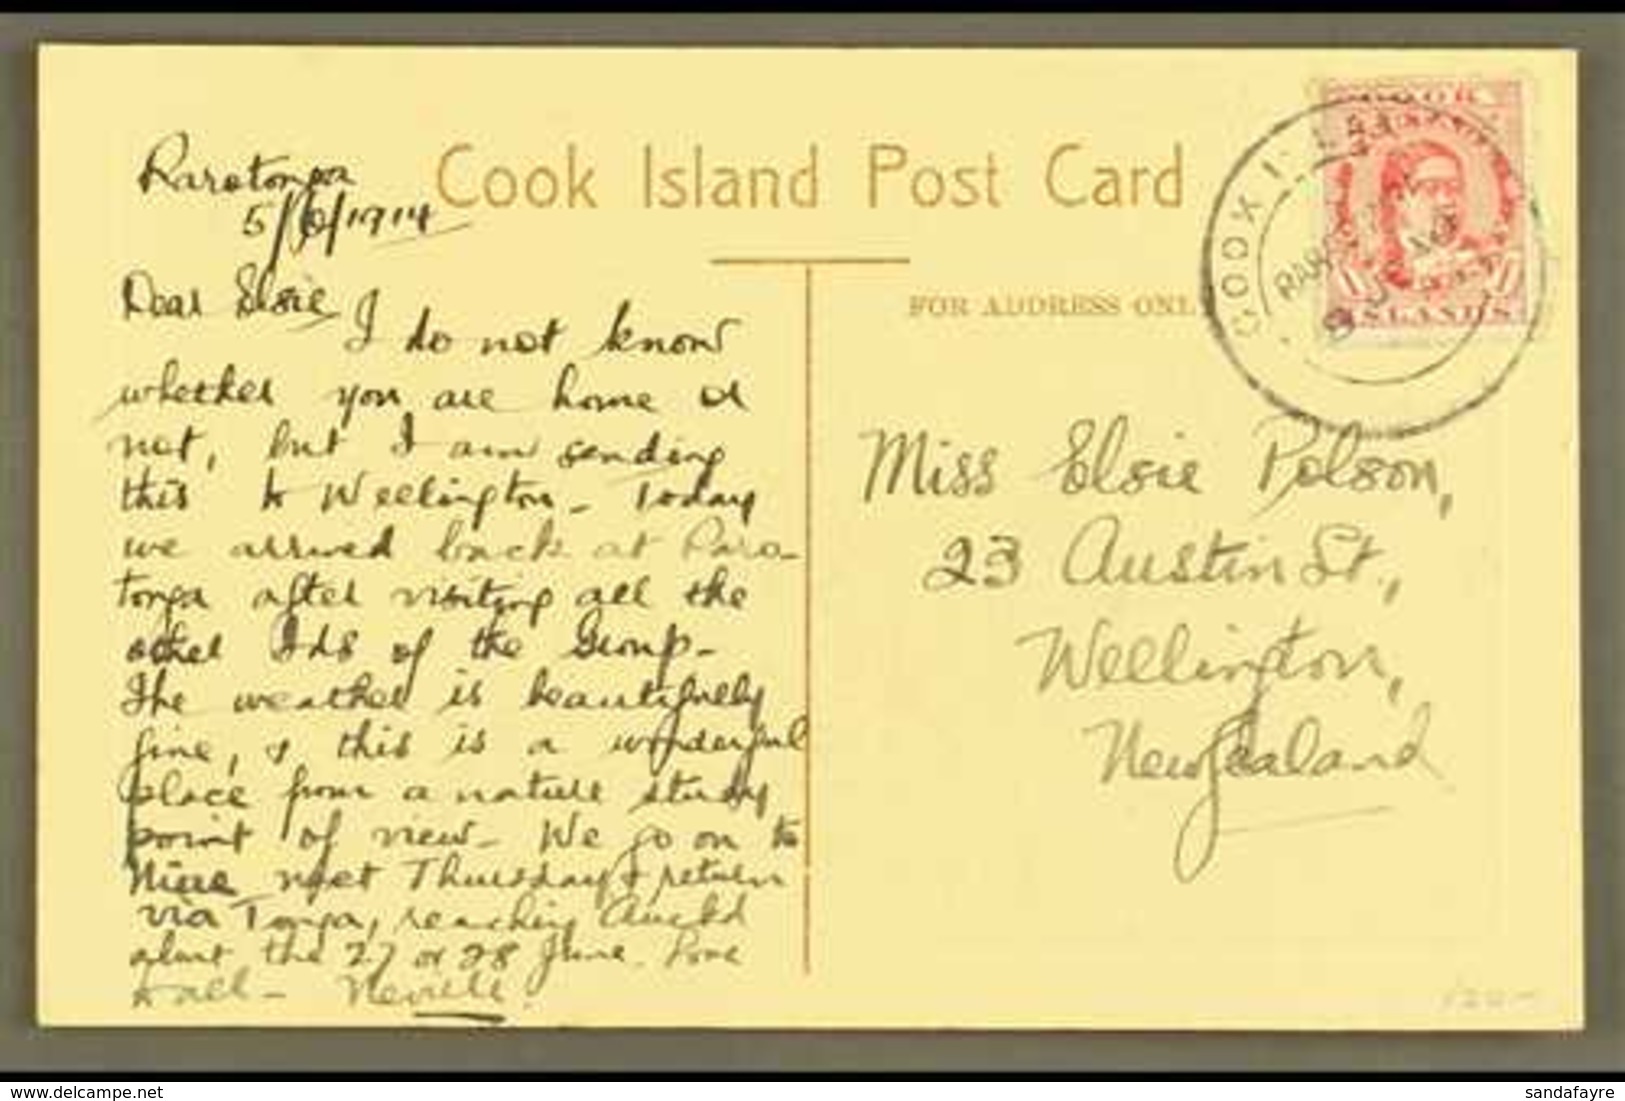 Cook Island Post Card
Rarotonga
5/6/1914
FOR ADDRESS ONLY
COOK ISLANDS
COOK
ISLANDS
Dear Elsie
I do not know
whether you are home or
not, but I am sending
this to Wellington - Today
we arrived back at Raro-
tonga after visiting all the
other Ids of the Group -
The weather is beautifully
fine, & this is a wonderful
place from a nature study
point of view - We go on to
Niue next Thursday & return
via Tonga, reaching Auckld
about the 27 or 28 June. Love
to all - Neville.
Miss Elsie Polson,
23 Austin St.,
Wellington,
New Zealand
delcampe.net
sandafayre